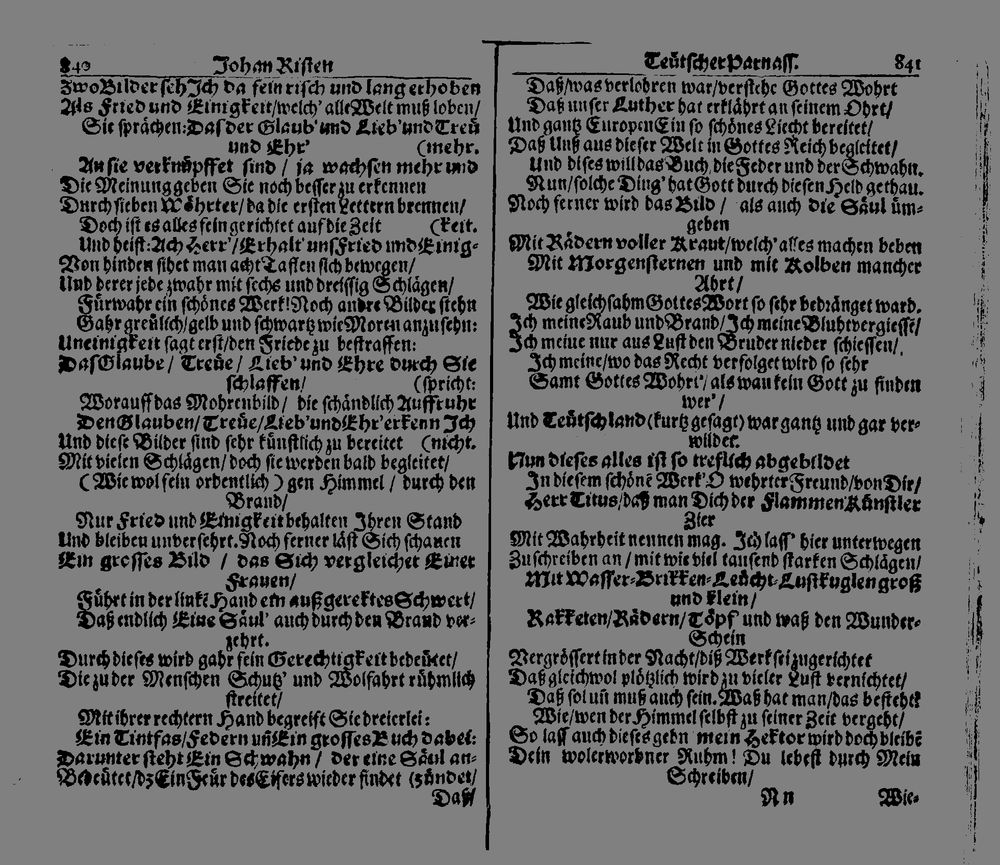 840 Johan Risten
ZwoBilder seh Jch da fein risch und lang erhoben
Als Fried und Einigkeit/welch' alle Welt muß loben/
Sie sprächen: Das der Glaub' und Lieb' und Treü
und Ehr' (mehr.
An sie verknüpffet sind / ja wachsen mehr und
Die Meinung geben Sie noch besser zu erkennen
Durch sieben Wöhrter/ da die ersten Lettern brennen/
Doch ist es alles fein gerichtet auf die Zeit (keit.
Und heist: Ach Herr'/Erhalt' uns Fried und Einig-
Von hinden sihet man acht Taflen sich bewegen/
Und derer jede zwahr mit sechs und dreissig Schlägen/
Fürwahr ein schönes Werk! Noch andre Bilder stehn
Gahr greülich/gelb und schwartz wie Moren anzusehn:
Uneinigkeit sagt erst/den Friede zu bestraffen:
Das Glaube / Treüe / Lieb' und Ehre durch Sie
schlaffen/ (spricht:
Worauff das Mohrenbild / die schändlich Auffruhr
Den Glauben/Treüe/Lieb' und Ehr' erkenn Jch
Und diese Bilder sind sehr künstlich zu bereitet (nicht.
Mit vielen Schlägen/ doch sie werden bald begleitet/
(Wie wol fein ordentlich) gen Himmel / durch den
Brand/
Nur Fried und Einigkeit behalten Jhren Stand
Und bleiben unversehrt. Noch ferner läst Sich schauen
Ein grosses Bild / das Sich vergleichet Einer
Frauen/
Führt in der linkē Hand ein außgerektes Schwert/
Daß endlich Eine Säul' auch durch den Brand ver-
zehrt.
Durch dieses wird gahr fein Gerechtigkeit bedeütet/
Die zu der Menschen Schutz' und Wolfahrt rühmlich
streitet/
Mit ihrer rechtern Hand begreift Sie dreierlei:
Ein Tintfas/Federn uñ Ein grosses Buch dabei:
Darunter steht Ein Schwahn / der eine Säul an-
Bedeütet/dz Ein Feür des Eifers wieder findet (zündet/
Daß/
Teütscher Parnass. 841
Daß/was verlohren war/verstehe Gottes Wohrt
Daß unser Luther hat erklährt an seinem Ohrt/
Und gantz Europen Ein so schönes Liecht bereitet/
Daß Unß aus dieser Welt in Gottes Reich begleitet/
Und dises will das Buch/die Feder und der Schwahn.
Nun/solche Ding' hat Gott durch diesen Held gethan.
Noch ferner wird das Bild / als auch die Säul üm-
geben
Mit Rädern voller Kraut/welch' alles machen beben
Mit Morgensternen und mit Kolben mancher
Ahrt/
Wie gleichsahm Gottes Wort so sehr bedränget ward.
Jch meine Raub und Brand/ Jch meine Bluhtvergiesse/
Jch meine nur aus Lust den Bruder nieder schiessen/
Jch meine/wo das Recht verfolget wird so sehr
Samt Gottes Wohrt'/ als wan kein Gott zu finden
wer'/
Und Teütschland (kurtz gesagt) war gantz und gar ver-
wildet.
Nun dieses alles ist so treflich abgebildet
In diesem schönē Werk' O wehrter Freund/von Dir/
Herr Titus/daß man Dich der Flammen Künstler
Zier
Mit Wahrheit nennen mag. Jch lass' hier unterwegen
Zuschreiben an / mit wie viel tausend starken Schlägen/
Mit Wasser-Brikken-Leücht-Lustkuglen groß
und klein/
Rakketen/Rädern/Töpf' und waß den Wunder-
Schein
Vergrössert in der Nacht/diß Werk sei zugerichtet
Daß gleichwol plötzlich wird zu vieler Lust vernichtet/
Daß sol uñ muß auch sein. Waß hat man/das besteht?
Wie/wen der Himmel selbst zu seiner Zeit vergeht/
So lass auch dieses gehn mein Hektor wird doch bleibē
Dein wolerworbner Ruhm! Du lebest durch Mein
Schreiben/
Nn Wie-